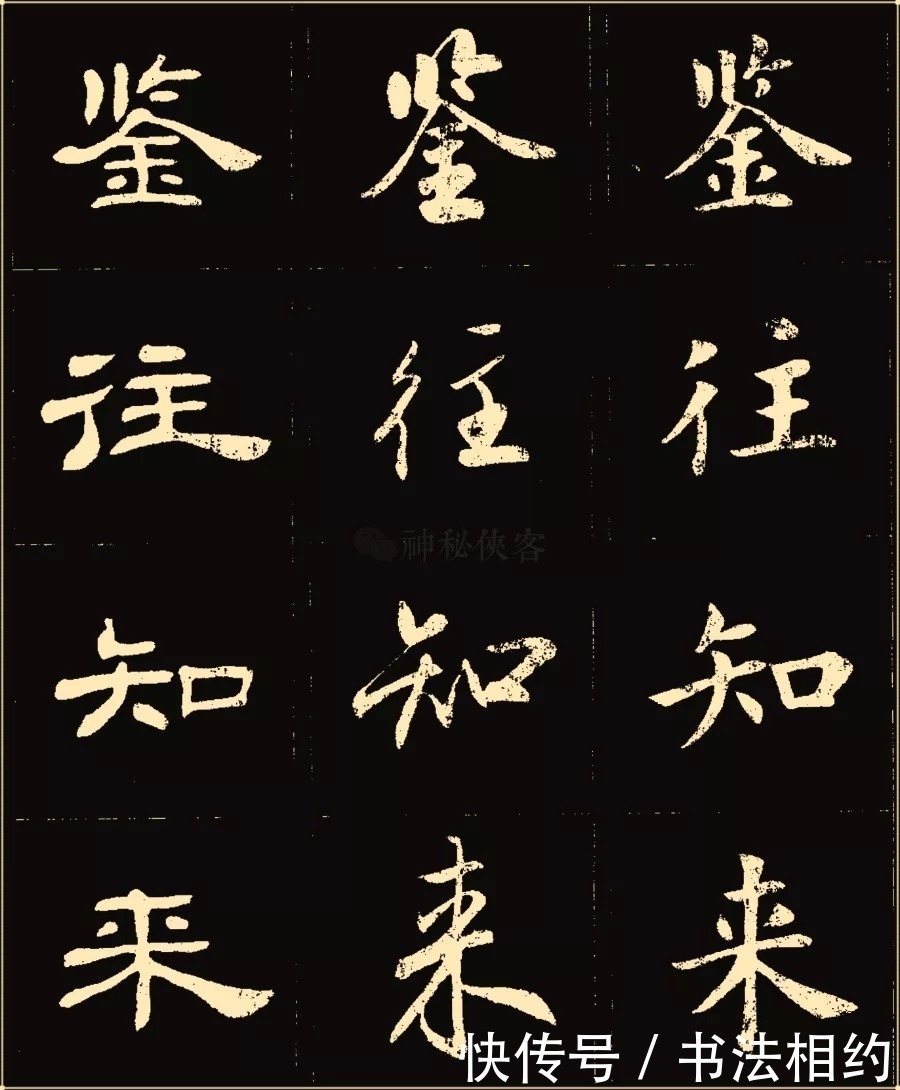 鉴鉴鉴
往往往
神秘侠客
知知知
来来来
快传号 / 书法相约